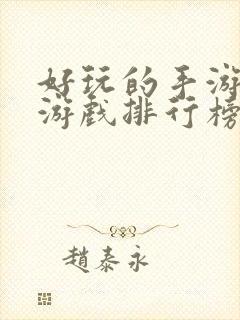 好玩的手游
游戏排行榜
趙泰永